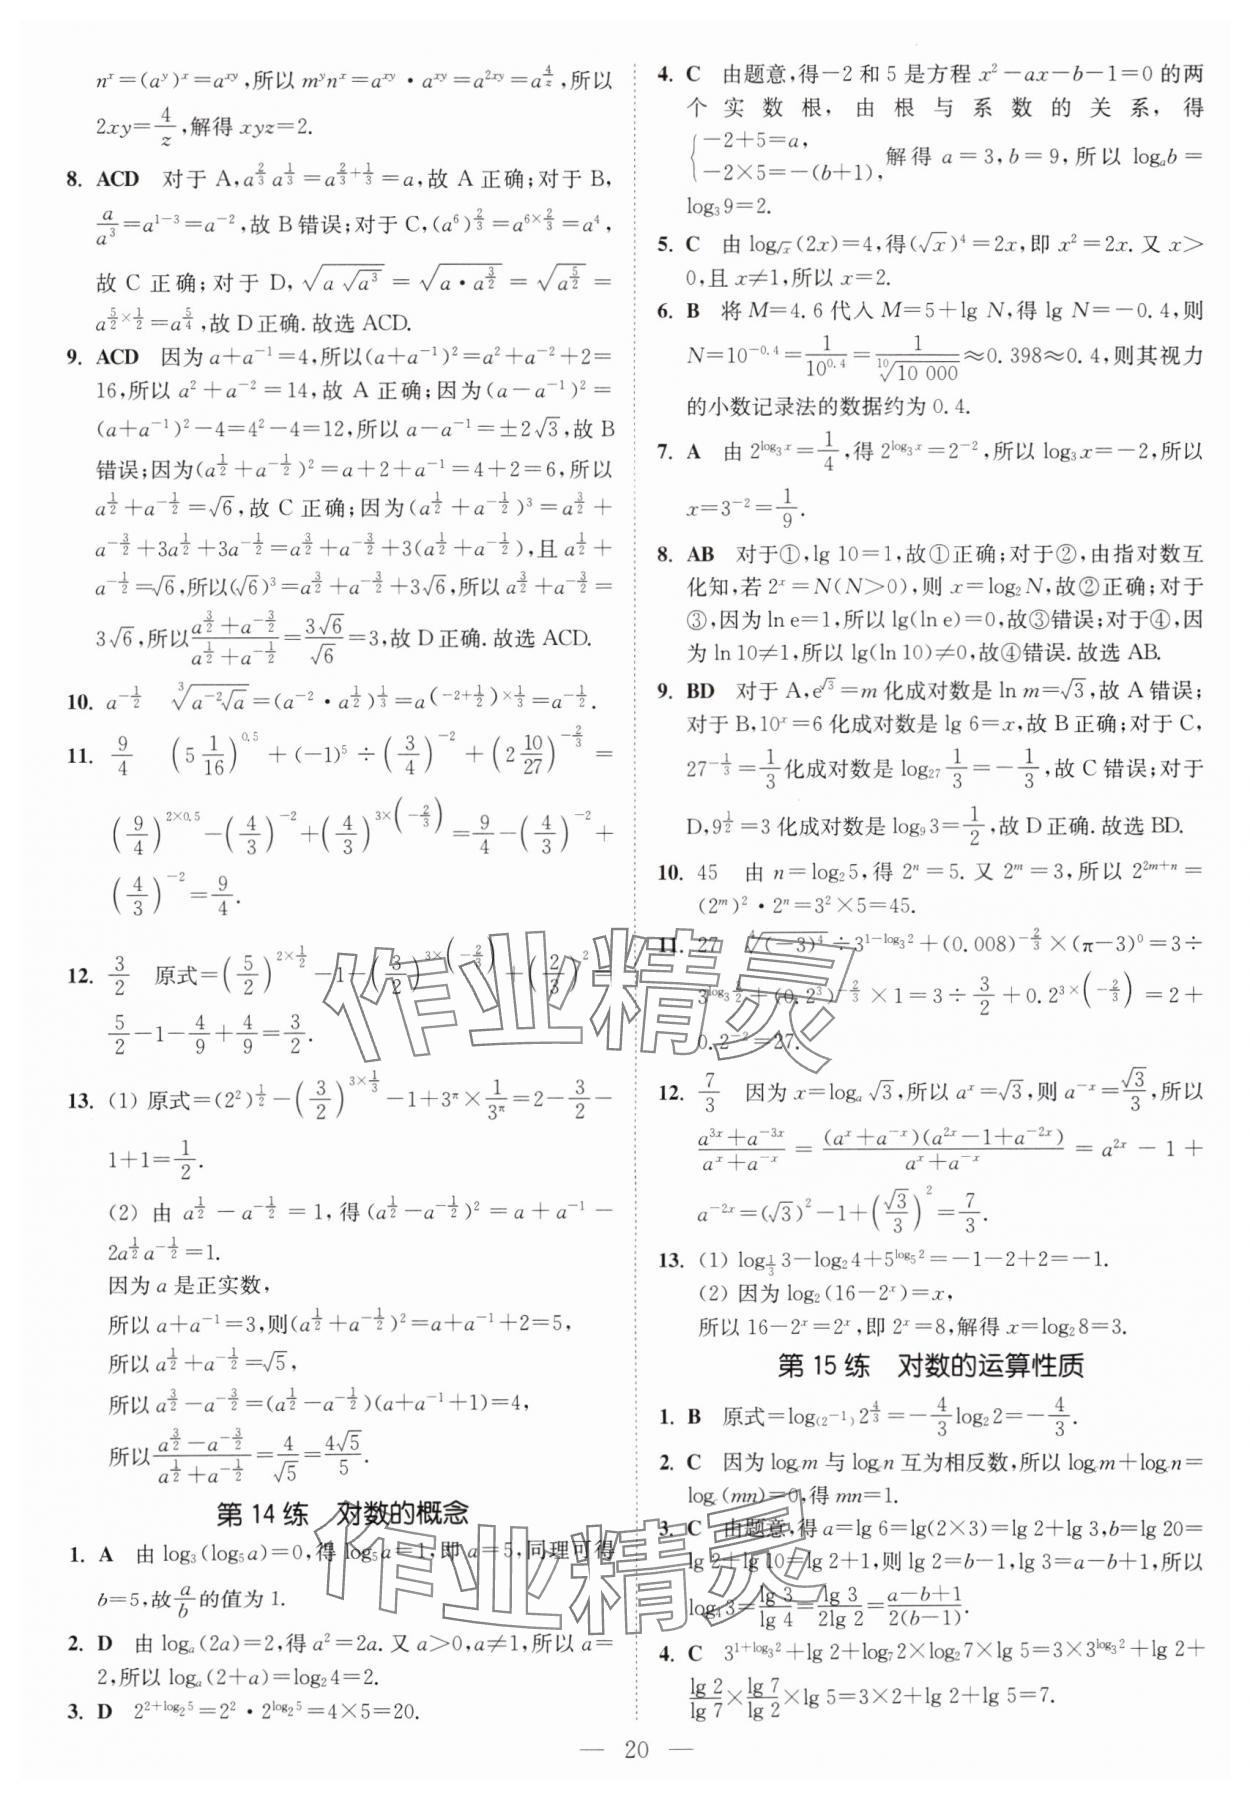 n^x=(a^y)^x=a^{xy},所以 m^y n^x=a^{xy}·a^{xy}=a^{2xy}=a^{\frac{4}{z}},所以
2xy=\frac{4}{z},解得 xyz=2.
8. ACD 对于 A,a^{\frac{2}{3}}a^{\frac{1}{3}}=a^{\frac{2}{3}+\frac{1}{3}}=a,故 A 正确;对于 B,
\frac{a}{a^3}=a^{1-3}=a^{-2},故 B 错误;对于 C,(a^6)^{\frac{2}{3}}=a^{6×\frac{2}{3}}=a^4,
故 C 正确;对于 D,\sqrt{a\sqrt{a^3}}=\sqrt{a·a^{\frac{3}{2}}}=\sqrt{a^{\frac{5}{2}}}=
a^{\frac{5}{2}×\frac{1}{2}}=a^{\frac{5}{4}},故 D 正确.故选 ACD.
9. ACD 因为 a+a^{-1}=4,所以(a+a^{-1})^2=a^2+a^{-2}+2=
16,所以 a^2+a^{-2}=14,故 A 正确;因为(a-a^{-1})^2=
(a+a^{-1})^2-4=4^2-4=12,所以 a-a^{-1}=±2\sqrt{3},故 B
错误;因为(a^{\frac{1}{2}}+a^{-\frac{1}{2}})^2=a+2+a^{-1}=4+2=6,所以
a^{\frac{1}{2}}+a^{-\frac{1}{2}}=\sqrt{6},故 C 正确;因为(a^{\frac{1}{2}}+a^{-\frac{1}{2}})^3=a^{\frac{3}{2}}+
a^{-\frac{3}{2}}+3a^{\frac{1}{2}}+3a^{-\frac{1}{2}}=a^{\frac{3}{2}}+a^{-\frac{3}{2}}+3(a^{\frac{1}{2}}+a^{-\frac{1}{2}}),且 a^{\frac{1}{2}}+
a^{-\frac{1}{2}}=\sqrt{6},所以(\sqrt{6})^3=a^{\frac{3}{2}}+a^{-\frac{3}{2}}+3\sqrt{6},所以 a^{\frac{3}{2}}+a^{-\frac{3}{2}}=
3\sqrt{6},所以\frac{a^{\frac{3}{2}}+a^{-\frac{3}{2}}}{a^{\frac{1}{2}}+a^{-\frac{1}{2}}}=\frac{3\sqrt{6}}{\sqrt{6}}=3,故 D 正确.故选 ACD.
10. a^{-\frac{1}{2}} \sqrt[3]{a^{-2}\sqrt{a}}=(a^{-2}·a^{\frac{1}{2}})^{\frac{1}{3}}=a^{(-2+\frac{1}{2})×\frac{1}{3}}=a^{-\frac{1}{2}}.
11. \frac{9}{4} (5\frac{1}{16})^{0.5}+(-1)^5÷(\frac{3}{4})^{-2}+(2\frac{10}{27})^{-\frac{2}{3}}=
(\frac{9}{4})^{2×0.5}-(\frac{4}{3})^{-2}+(\frac{4}{3})^{3×(-\frac{2}{3})}=\frac{9}{4}-(\frac{4}{3})^{-2}+
(\frac{4}{3})^{-2}=\frac{9}{4}.
12. \frac{3}{2} 原式=(\frac{5}{2})^{2×\frac{1}{2}}-1-(\frac{3}{2})^{3×(-\frac{2}{3})}+(\frac{2}{3})^2=
\frac{5}{2}-1-\frac{4}{9}+\frac{4}{9}=\frac{3}{2}.
13. (1) 原式=(2^2)^{\frac{1}{2}}-(\frac{3}{2})^{3×\frac{1}{3}}-1+3^π×\frac{1}{3^π}=2-\frac{3}{2}-
1+1=\frac{1}{2}.
(2) 由 a^{\frac{1}{2}}-a^{-\frac{1}{2}}=1,得(a^{\frac{1}{2}}-a^{-\frac{1}{2}})^2=a+a^{-1}-
2a^{\frac{1}{2}}a^{-\frac{1}{2}}=1.
因为 a 是正实数,
所以 a+a^{-1}=3,则(a^{\frac{1}{2}}+a^{-\frac{1}{2}})^2=a+a^{-1}+2=5,
所以 a^{\frac{1}{2}}+a^{-\frac{1}{2}}=\sqrt{5},
所以 a^{\frac{3}{2}}-a^{-\frac{3}{2}}=(a^{\frac{1}{2}}-a^{-\frac{1}{2}})(a+a^{-1}+1)=4,
所以\frac{a^{\frac{3}{2}}-a^{-\frac{3}{2}}}{a^{\frac{1}{2}}+a^{-\frac{1}{2}}}=\frac{4}{\sqrt{5}}=\frac{4\sqrt{5}}{5}.
第 14 练 对数的概念
1. A 由 log_3(log_5 a)=0,得 log_5 a=1,即 a=5,同理可得
b=5,故\frac{a}{b}的值为 1.
2. D 由 log_a(2a)=2,得 a^2=2a.又 a>0,a≠1,所以 a=
2,所以 log_a(2+a)=log_2 4=2.
3. D 2^{2+log_2 5}=2^2·2^{log_2 5}=4×5=20.
4. C 由题意,得-2 和 5 是方程 x^2-ax-b-1=0 的两
个实数根,由根与系数的关系,得
{-2+5=a,
-2×5=-(b+1), 解得 a=3,b=9,所以 log_a b=
log_3 9=2.
5. C 由 log_{\sqrt{x}}(2x)=4,得(\sqrt{x})^4=2x,即 x^2=2x.又 x>
0,且 x≠1,所以 x=2.
6. B 将 M=4.6 代入 M=5+lg N,得 lg N=-0.4,则
N=10^{-0.4}=\frac{1}{10^{0.4}}=\frac{1}{\sqrt[10]{10 000}}≈0.398≈0.4,则其视力
的小数记录法的数据约为 0.4.
7. A 由 2^{log_3 x}=\frac{1}{4},得 2^{log_3 x}=2^{-2},所以 log_3 x=-2,所以
x=3^{-2}=\frac{1}{9}.
8. AB 对于①,lg 10=1,故①正确;对于②,由指对数互
化知,若 2^x=N(N>0),则 x=log_2 N,故②正确;对于
③,因为 ln e=1,所以 lg(ln e)=0,故③错误;对于④,因
为 ln 10≠1,所以 lg(ln 10)≠0,故④错误.故选 AB.
9. BD 对于 A,e^{\sqrt{3}}=m 化成对数是 ln m=\sqrt{3},故 A 错误;
对于 B,10^x=6 化成对数是 lg 6=x,故 B 正确;对于 C,
27^{-\frac{1}{3}}=\frac{1}{3}化成对数是 log_{27}\frac{1}{3}=-\frac{1}{3},故 C 错误;对于
D,9^{\frac{1}{2}}=3 化成对数是 log_9 3=\frac{1}{2},故 D 正确.故选 BD.
10. 45 由 n=log_2 5,得 2^n=5.又 2^m=3,所以 2^{2m+n}=
(2^m)^2·2^n=3^2×5=45.
11. 27 \sqrt[4]{(-3)^4}÷3^{1-log_3 2}+(0.008)^{-\frac{2}{3}}×(π-3)^0=3÷
3^{log_3\frac{3}{2}}+(0.2^3)^{-\frac{2}{3}}×1=3÷\frac{3}{2}+0.2^{3×(-\frac{2}{3})}=2+
0.2^{-2}=27.
12. \frac{7}{3} 因为 x=log_a\sqrt{3},所以 a^x=\sqrt{3},则 a^{-x}=\frac{\sqrt{3}}{3},所以
\frac{a^{3x}+a^{-3x}}{a^x+a^{-x}}=\frac{(a^x+a^{-x})(a^{2x}-1+a^{-2x})}{a^x+a^{-x}}=a^{2x}-1+
a^{-2x}=(\sqrt{3})^2-1+(\frac{\sqrt{3}}{3})^2=\frac{7}{3}.
13. (1) log_{\frac{1}{3}}3-log_2 4+5^{log_5 2}=-1-2+2=-1.
(2) 因为 log_2(16-2^x)=x,
所以 16-2^x=2^x,即 2^x=8,解得 x=log_2 8=3.
第 15 练 对数的运算性质
1. B 原式=log_{(2^{-1})}2^{\frac{4}{3}}=-\frac{4}{3}log_2 2=-\frac{4}{3}.
2. C 因为 log_c m 与 log_c n 互为相反数,所以 log_c m+log_c n=
log_c(mn)=0,得 mn=1.
3. C 由题意,得 a=lg 6=lg(2×3)=lg 2+lg 3,b=lg 20=
lg 2+lg 10=lg 2+1,则 lg 2=b-1,lg 3=a-b+1,所以
log_4 3=\frac{lg 3}{lg 4}=\frac{lg 3}{2lg 2}=\frac{a-b+1}{2(b-1)}.
4. C 3^{1+log_3 2}+lg 2+log_7 2×log_2 7×lg 5=3×3^{log_3 2}+lg 2+
\frac{lg 2}{lg 7}×\frac{lg 7}{lg 2}×lg 5=3×2+lg 2+lg 5=7.
— 20 —
作业精灵
作业精灵